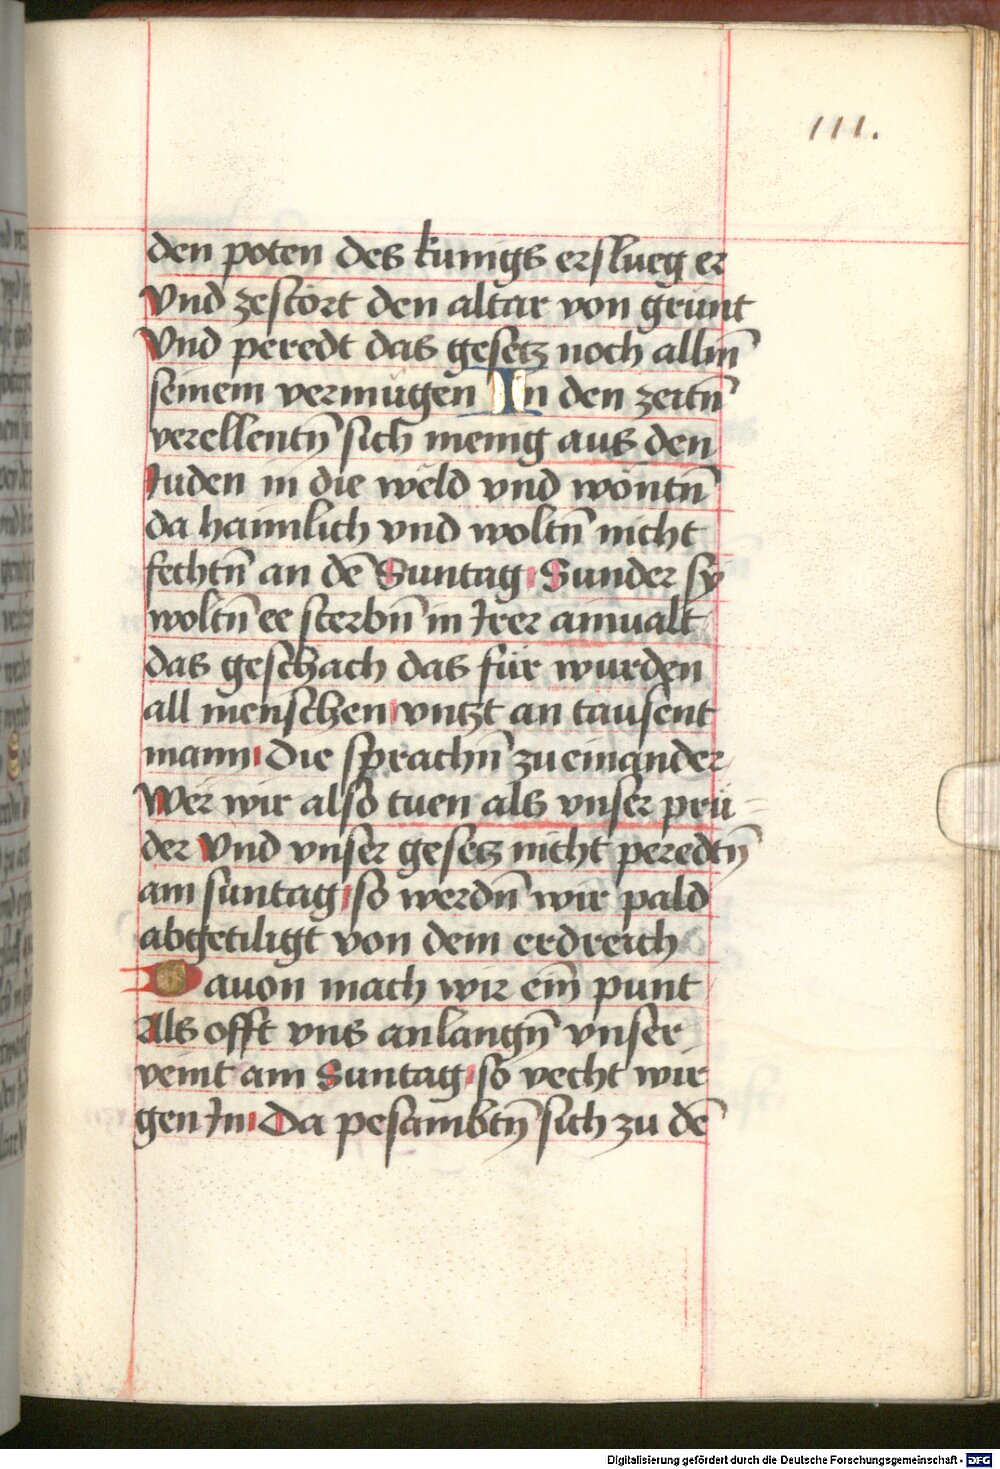 111.
den poten des kunigs erslueg er
Vnd zestört den altar von grunt
Vnd peredt das gesetz noch allm̄
seinem vermugen In den zeitn̄
verellentn̄ sich menig aus den
Juden in die weld vnd wontn̄
da haimlich vnd woltn̄ nicht
fechtn̄ an dē Suntag Sunder sy
woltn̄ ee sterbn̄ in Irer ainualt
das geschach das für wurden
all menschen vntzt an tausent
mann Die sprachn̄ zu einander
Wer wir also tuen als vnser prü
der Vnd vnser gesetz nicht peredtn̄
am suntag so werdn̄ wir pald
abgetiligt von dem erdreich
Dauon mach wir ein̄ punt
Als offt vns anlangn̄ vnser
veint am Suntag so vecht wir
gen In Da pesambtn̄ sich zu dē
Digitalisierung gefördert durch die Deutsche Forschungsgemeinschaft - DFG